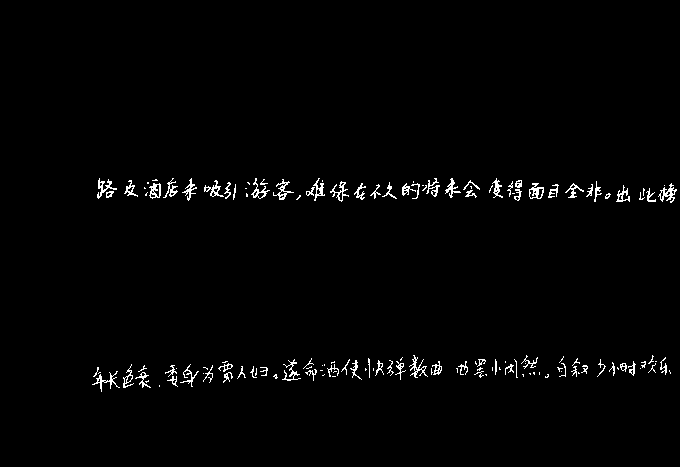 路及酒店来吸引游客,难保在不久的将来会变得面目全非。出此
年长色衰,委身为贾人妇。遂命酒使快弹数曲 曲罢悯然。自叙少小时欢乐